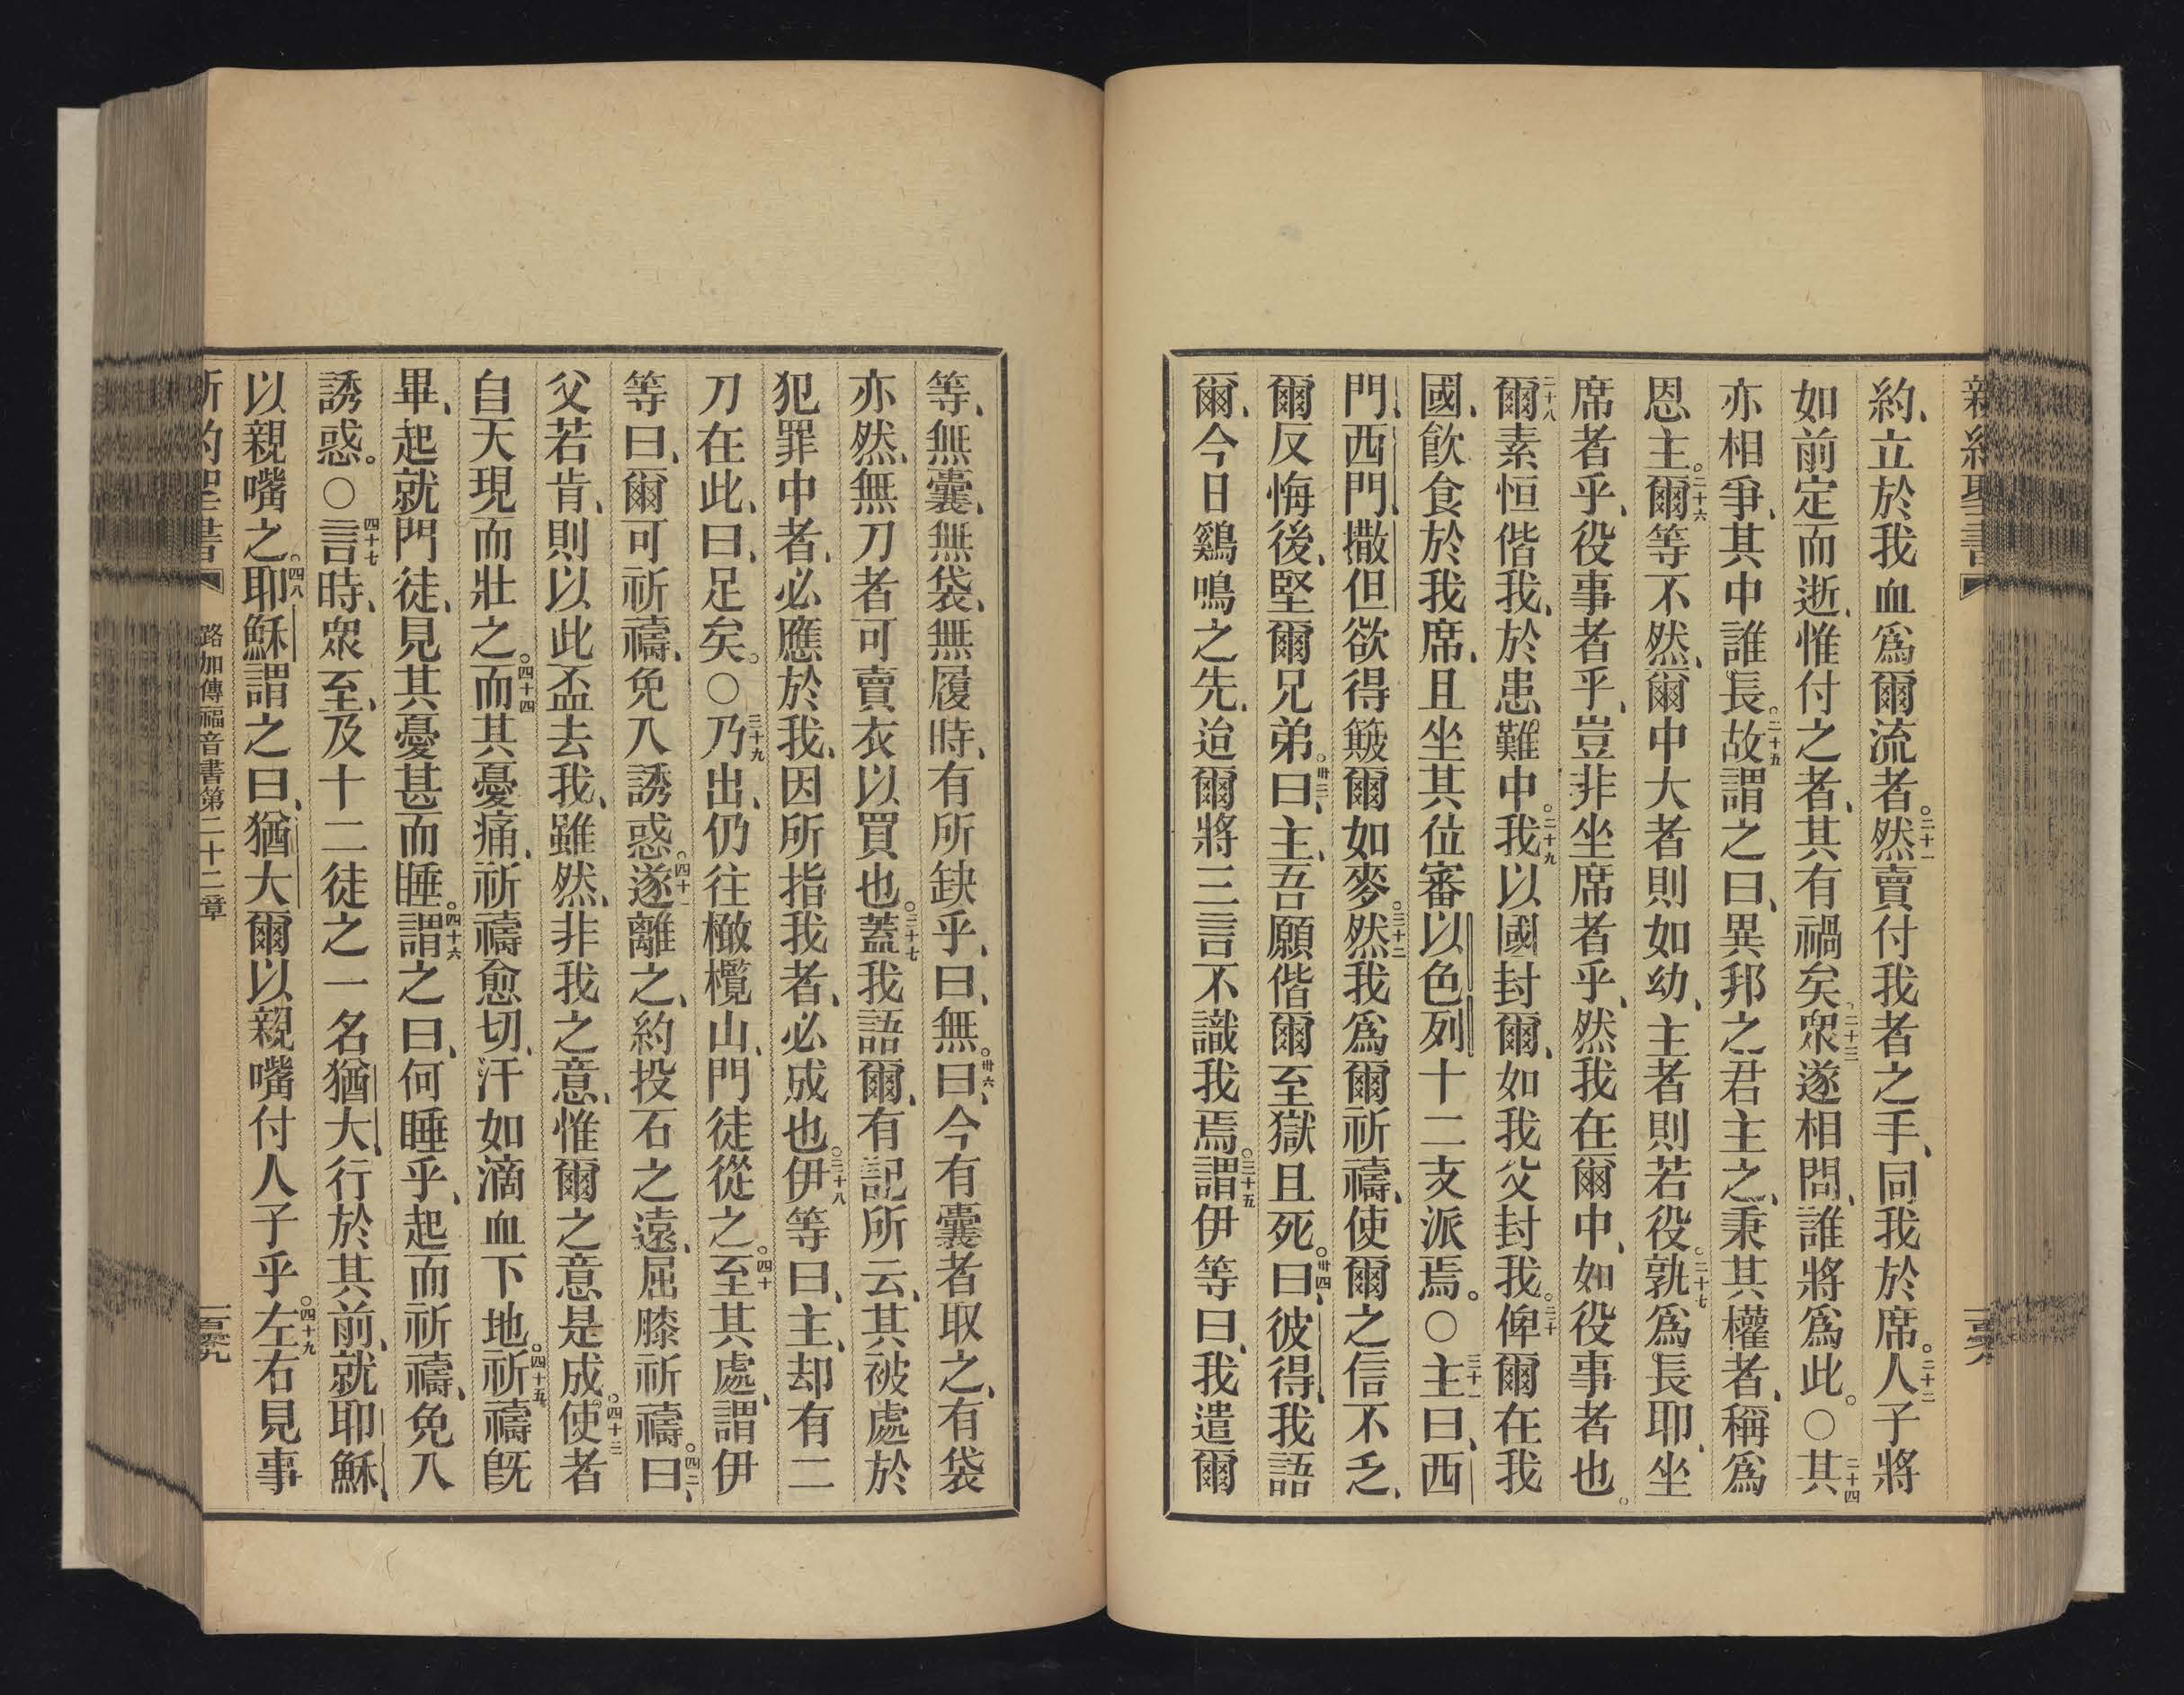 新約聖書
約、立於我血爲爾流者。二十一然賣付我者之手、同我於席。二十二人子將
如前定而逝、惟付之者、其有禍矣。二十三衆遂相問、誰將爲此。○二十四其
亦相爭、其中誰長。二十五故謂之曰、異邦之君主之、秉其權者、稱爲
恩主。二十六爾等不然、爾中大者則如幼、主者則若役。二十七孰爲長耶、坐
席者乎、役事者乎、豈非坐席者乎、然我在爾中、如役事者也。
二十八爾素恒偕我、於患難中。二十九我以國封爾、如我父封我。三十俾爾在我
國、飲食於我席、且坐其位審以色列十二支派焉。○三十一主曰、西
門、西門、撒但欲得簸爾如麥。三十二然我爲爾祈禱、使爾之信不乏、
爾反悔後、堅爾兄弟。卅三曰、主、吾願偕爾至獄且死。卅四曰、彼得、我語
爾、今日鷄鳴之先、迨爾將三言不識我焉。三十五謂伊等曰、我遣爾
等、無囊、無袋、無履時、有所缺乎、曰、無。卅六曰、今有囊者取之、有袋
亦然、無刀者可賣衣以買也。三十七蓋我語爾、有記所云、其被處於
犯罪中者、必應於我、因所指我者、必成也。三十八伊等曰、主、却有二
刀在此、曰、足矣。○三十九乃出、仍往橄欖山、門徒從之。四十至其處、謂伊
等曰、爾可祈禱、免入誘惑。四十一遂離之、約投石之遠、屈膝祈禱。四二曰、
父若肯、則以此盃去我、雖然、非我之意、惟爾之意是成。四十三使者
自天現而壯之。四十四而其憂痛、祈禱愈切、汗如滴血下地。四十五祈禱旣
畢、起就門徒、見其憂甚而睡。四十六謂之曰、何睡乎、起而祈禱、免入
誘惑。○四十七言時、衆至、及十二徒之一名猶大、行於其前、就耶穌、
以親嘴之。四八耶穌謂之曰、猶大爾以親嘴付人子乎。四十九左右見事
新約聖書 路加傳福音書第二十二章